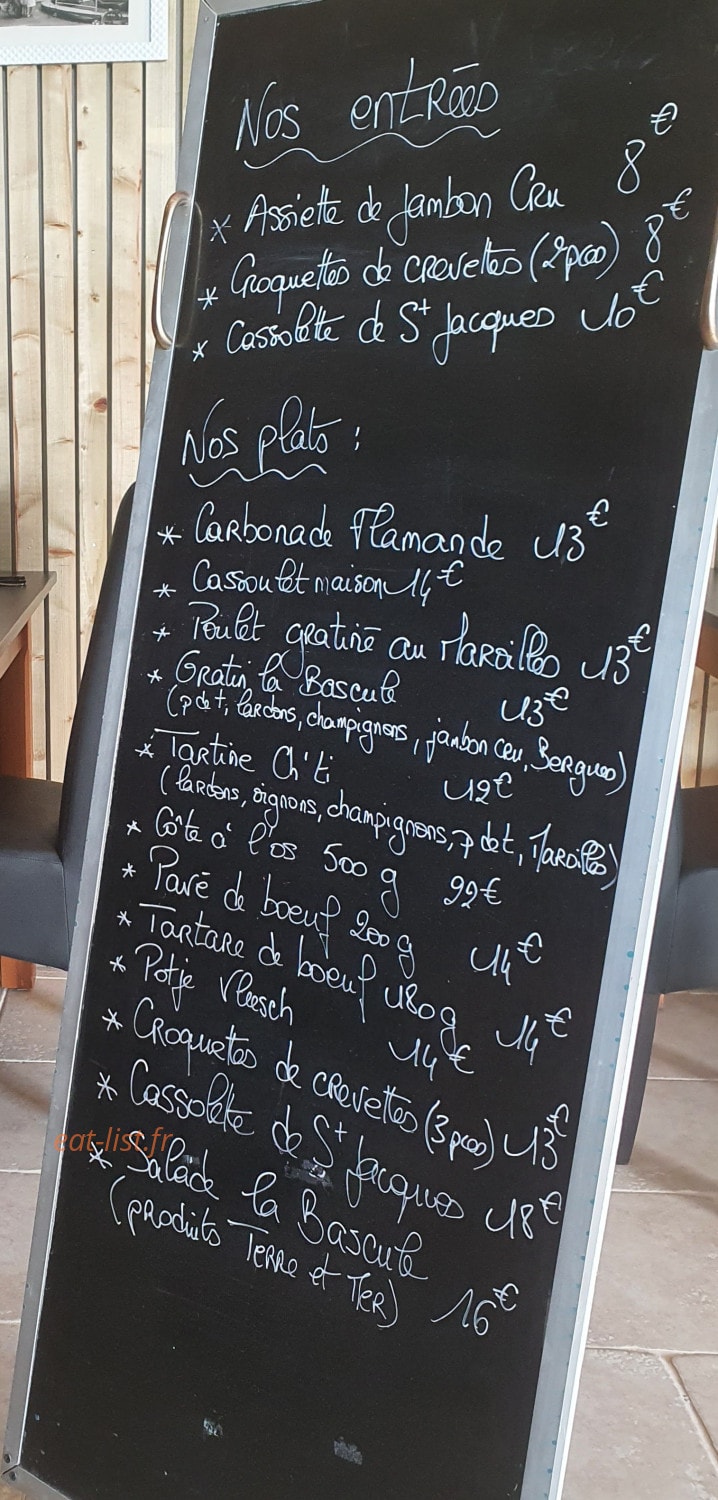 Nos entrées
* Assiette de Jambon Cru 8€
* Croquettes de crevettes (2pces) 8€
* Cassolette de St Jacques 10€
Nos plats :
* Carbonade Flamande 13€
* Cassoulet maison 14€
* Poulet gratiné au Maroilles 13€
* Gratin la Bascule 13€
(p det, lardons, champignons, jambon cru, Bergues)
* Tartine Ch'ti 12€
(lardons, oignons, champignons, p det, Maroilles)
* Côte à l'os 500g 22€
* Pavé de boeuf 200g 14€
* Tartare de boeuf 180g 14€
* Potje Vleesch 14€
* Croquettes de crevettes (3pces) 13€
* Cassolette de St Jacques 18€
* Salade la Bascule
(produits Terre et Mer) 16€
eat-list.fr